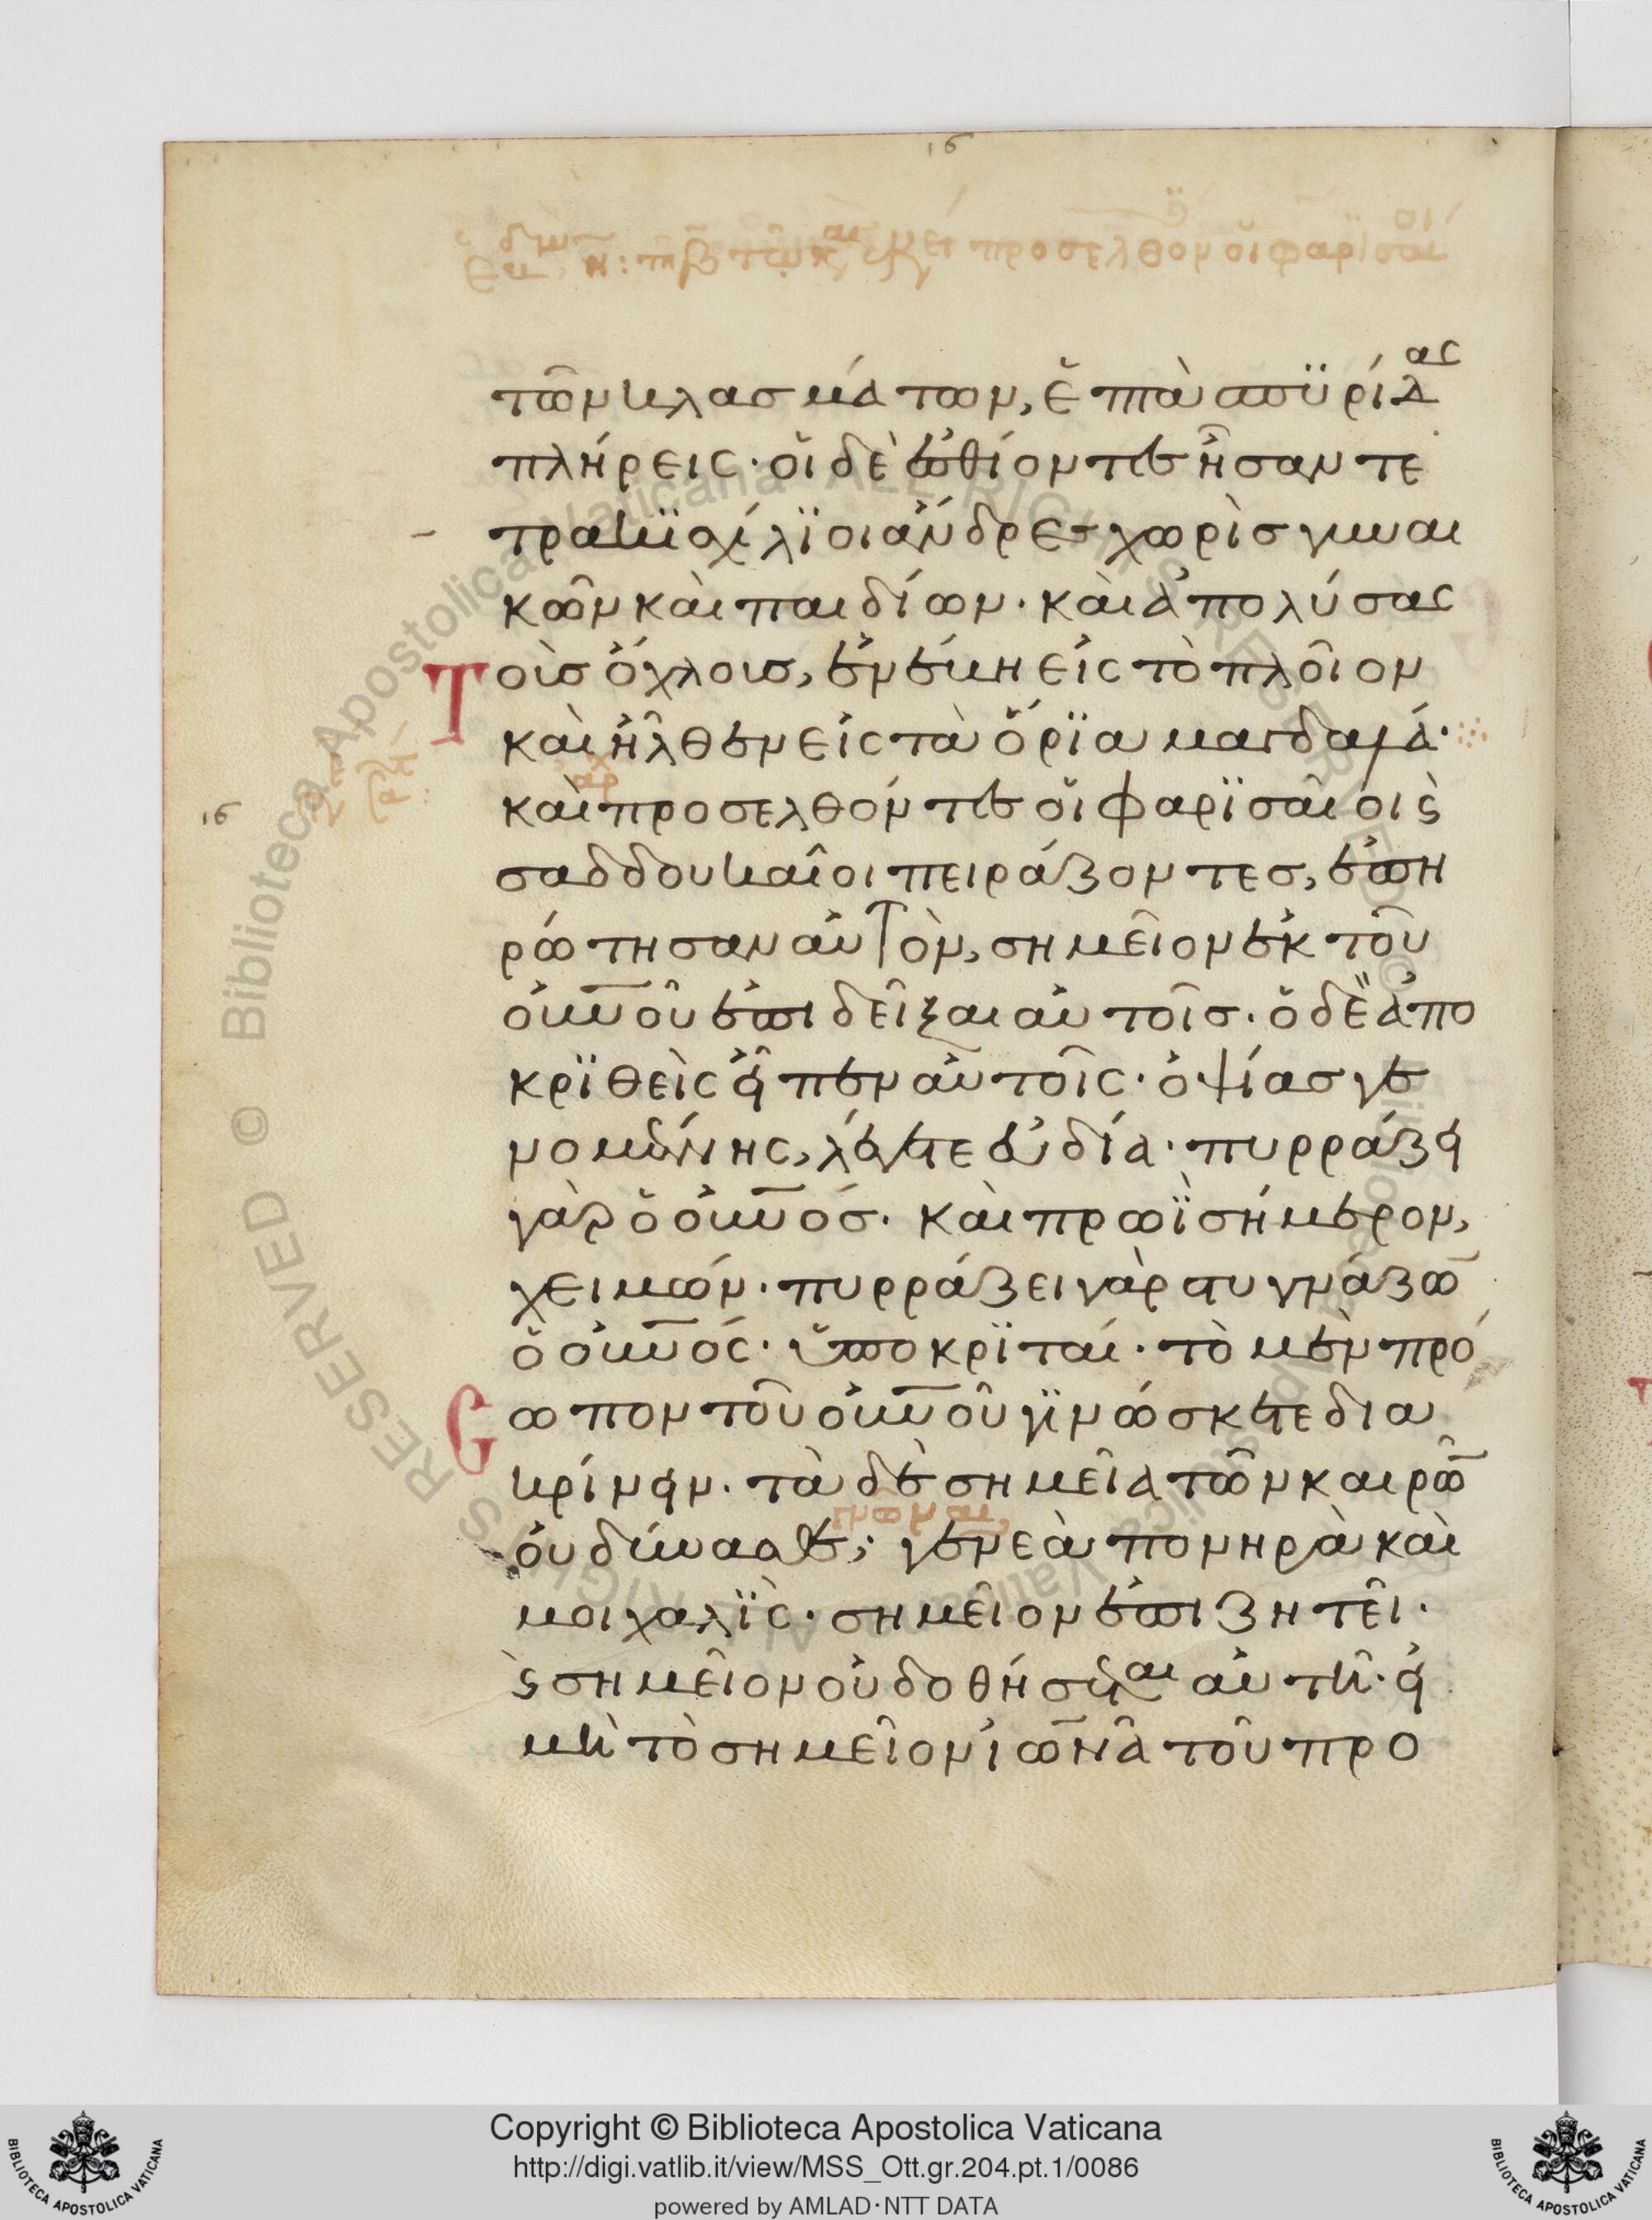 16
προσελθον οι φαρισαι
τῶν κλασμάτων, ἑπτὰ σπϋρίδας
πλήρεις· οἱ δὲ ἐσθίοντες ἦσαν τε
τρακϊσχίλϊοι ἄνδρες χωρὶσ γυναι
κῶν καὶ παιδίων· καὶ ἀπολύσας
Τοὺσ ὄχλους, ἐνέβη εἰς τὸ πλοῖον
καὶ ἦλθεν εἰς τὰ ὅρϊα μαγδαλά·
16 καὶ προσελθόντες οἱ φαρϊσαῖοι ϗ
σαδδουκαῖοι πειράζοντεσ, ἐπη
ρώτησαν αὐτὸν, σημεῖον ἐκ τοῦ
οὐν̅οῦ ἐπιδεῖξαι αὐτοῖσ· ὁ δὲ ἀπο
κρϊθεὶς εἶπεν αὐτοῖς· ὀψίασ γε
νομένης, λέγετε εὐδία· πυρράζει
γὰρ ὁ οὐν̅όσ· καὶ πρωῒ σήμερον,
χειμών· πυρράζει γὰρ στυγνάζω̅
ὁ οὐν̅ός· ὑποκρϊταί· τὸ μὲν πρό
Cωπον τοῦ οὐν̅οῦ γϊνώσκετε δια
κρίνειν· τὰ δὲ σημεῖα τῶν καιρῶ̅
οὐ δύνασθε; γενεὰ πονηρὰ καὶ
μοιχαλῒς· σημεῖον ἐπιζητεῖ·
ϗ σημεῖον οὐ δοθήσεται αὐτῆ· εἰ
μὴ τὸ σημεῖον ἰωνᾶ τοῦ προ
Biblioteca Apostolica Vaticana ALL RIGHTS RESERVED ©
Copyright © Biblioteca Apostolica Vaticana
http://digi.vatlib.it/view/MSS_Ott.gr.204.pt.1/0086
powered by AMLAD·NTT DATA
BIBLIOTECA APOSTOLICA VATICANA
BIBLIOTECA APOSTOLICA VATICANA